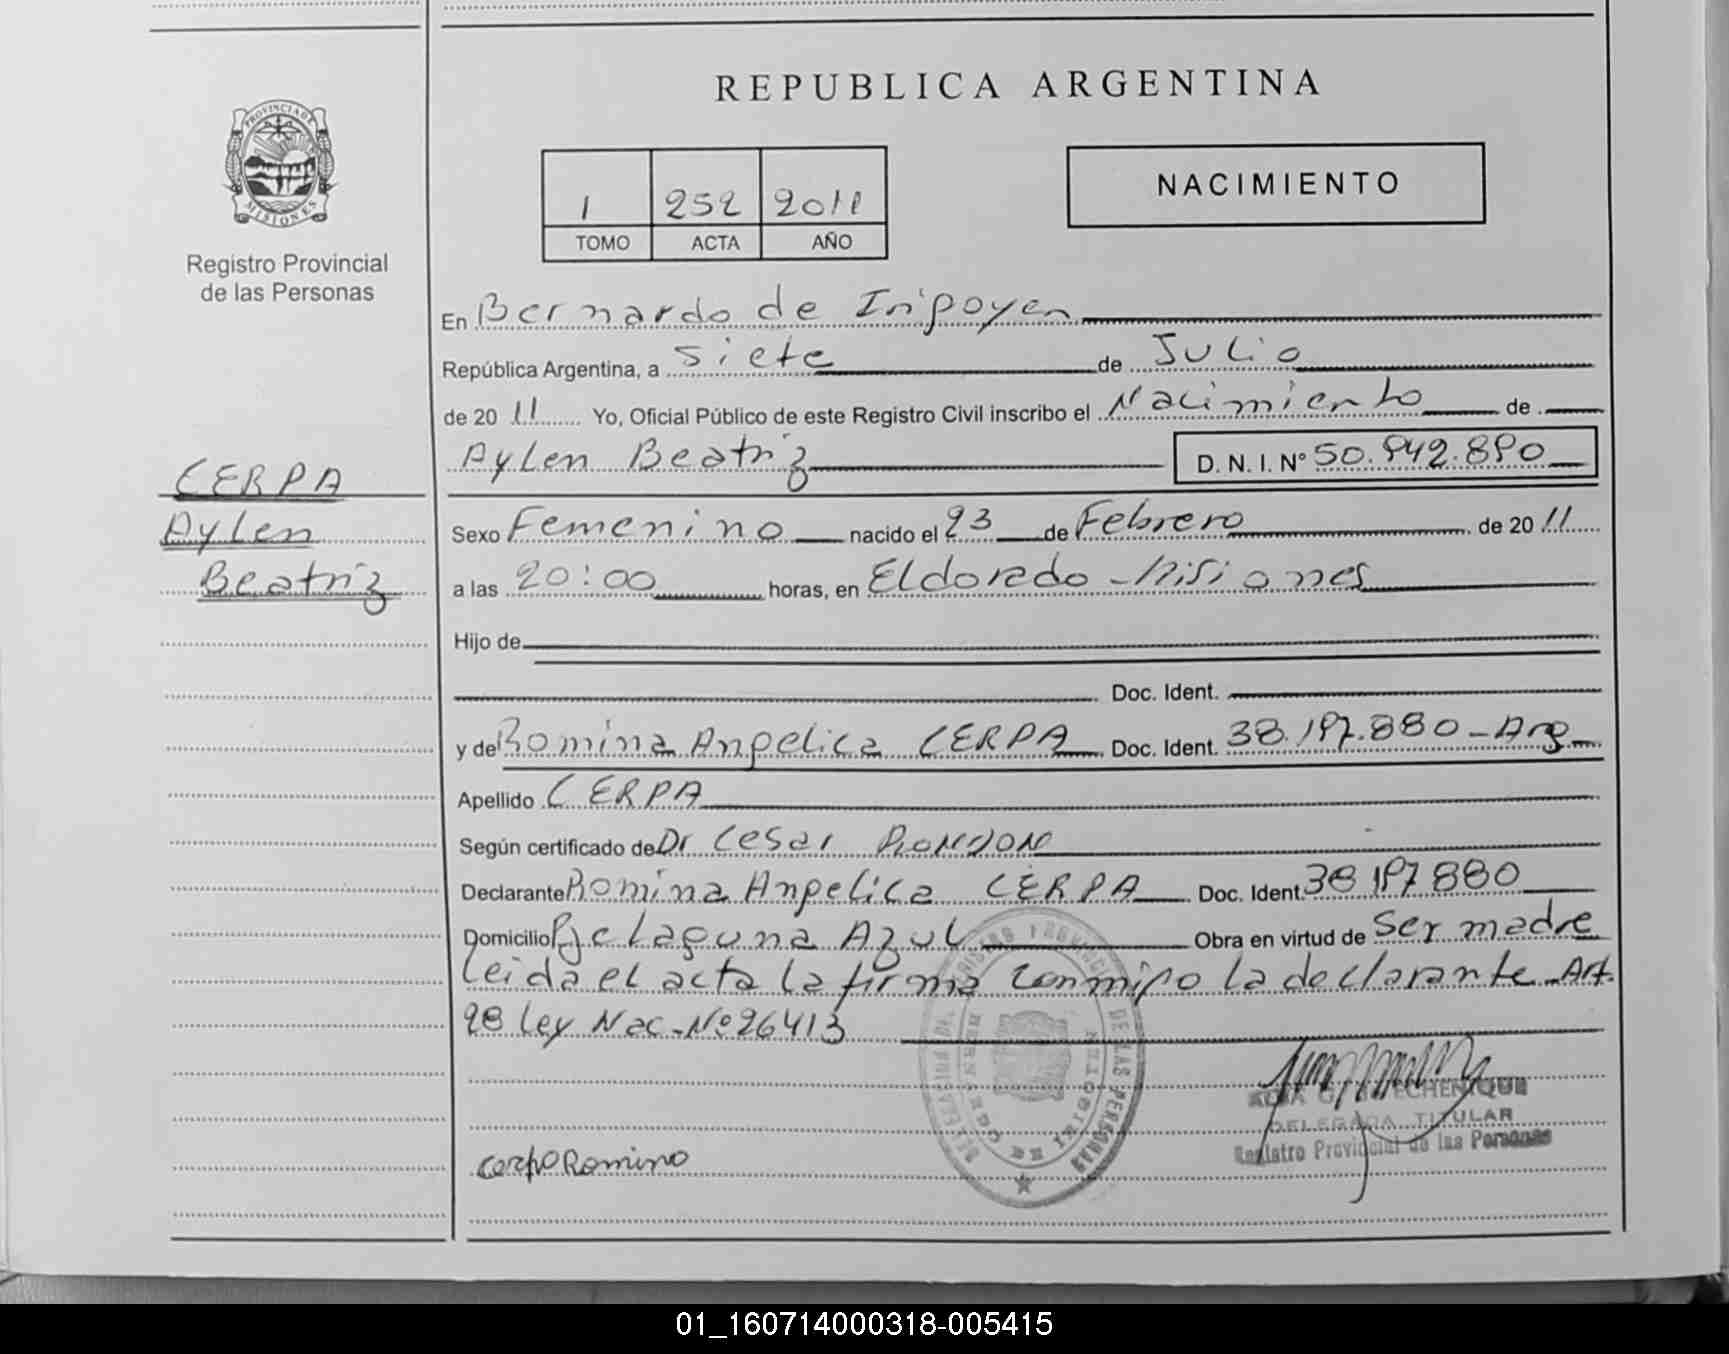 REPUBLICA ARGENTINA
PROVINCIA DE MISIONES
Registro Provincial
de las Personas
1 252 2011
TOMO ACTA AÑO
NACIMIENTO
En Bernardo de Irigoyen
República Argentina, a siete de Julio
de 2011 Yo, Oficial Público de este Registro Civil inscribo el Nacimiento de
Aylen Beatriz D. N. I. Nº
CERPA
Aylen
Beatriz
Sexo Femenino nacido el 23 de Febrero de 2011
a las 20:00 horas, en Eldorado - Misiones
Hijo de
Doc. Ident.
y de Romina Angelica CERPA Doc. Ident. 38.197.880 - Arg
Apellido CERPA
Según certificado de Dr Cesar
Declarante Romina Angelica CERPA Doc. Ident. 38 197 880
Domicilio Pje Laguna Azul Obra en virtud de ser madre
Leida el acta la firma conmigo la declarante Art.
28 Ley Nac. Nº 26413
DELEGADA TITULAR
Registro Provincial de las Personas
01_160714000318-005415